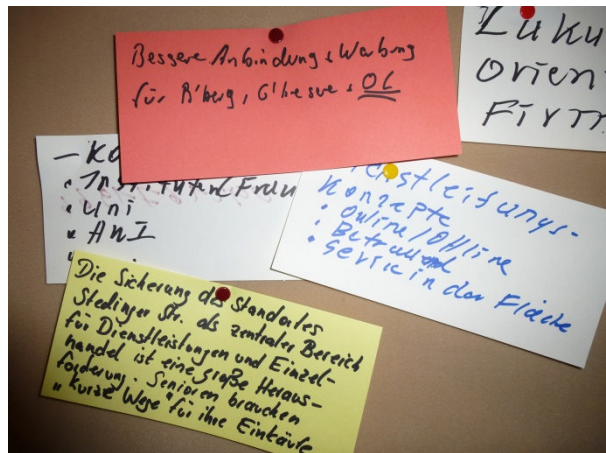 Bessere Anbindung & Werbung
für R'berg, G'hesue & OL
Zuku
Orien
Firm
- Ko
• Institute/Frau
• Uni
• AnI
Dienstleistungs-
Konzepte
• Online/Offline
• Betreuend
• Service in der Fläche
Die Sicherung des Standortes
Stedinger Str. als zentraler Bereich
für Dienstleistungen und Einzel-
handel ist eine große Heraus-
forderung. Senioren brauchen
"kurze Wege" für ihre Einkäufe